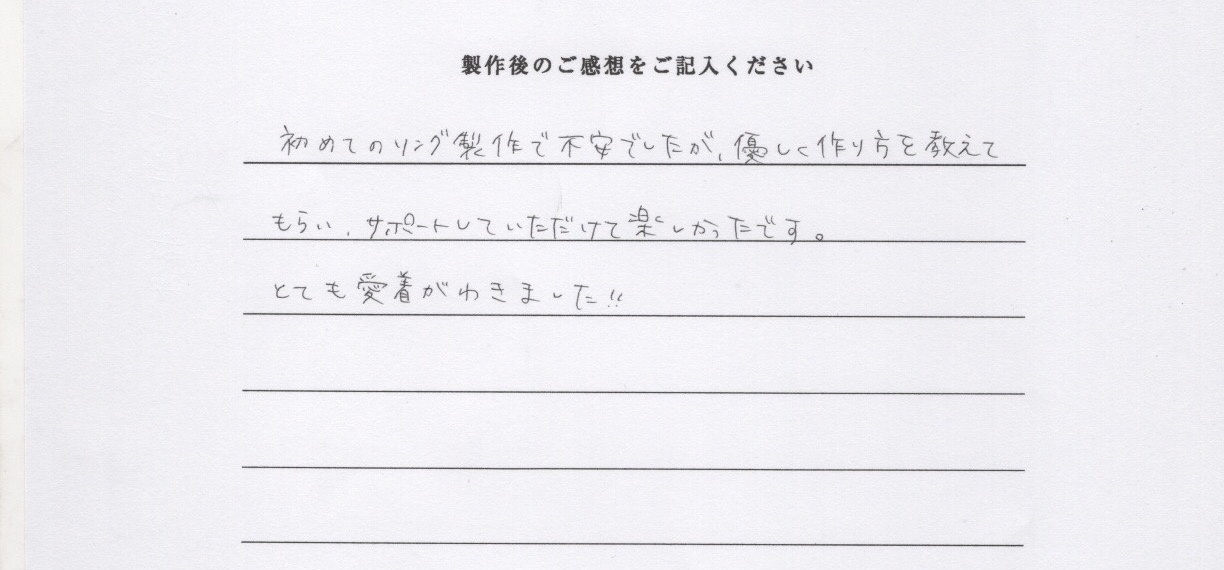 製作後のご感想をご記入ください
初めてのリング製作で不安でしたが、優しく作り方を教えて
もらい、サポートしていただけて楽しかったです。
とても愛着がわきました!!